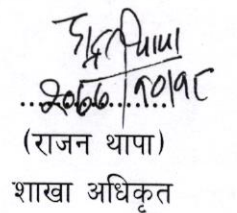 २०७७/१०/१८
(राजन थापा)
शाखा अधिकृत